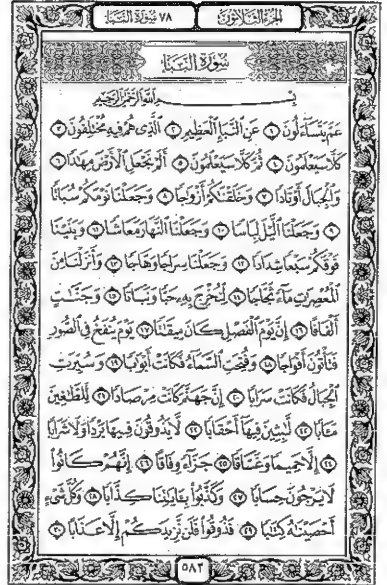 الجزء الثلاثون
٧٨ سورة النبإ
سورة النبإ
بسم الله الرحمن الرحيم
عَمَّ يَتَسَآءَلُونَ ١ عَنِ ٱلنَّبَإِ ٱلۡعَظِيمِ ٢ ٱلَّذِي هُمۡ فِيهِ مُخۡتَلِفُونَ ٣
كَلَّا سَيَعۡلَمُونَ ٤ ثُمَّ كَلَّا سَيَعۡلَمُونَ ٥ أَلَمۡ نَجۡعَلِ ٱلۡأَرۡضَ مِهَٰدٗا ٦
وَٱلۡجِبَالَ أَوۡتَادٗا ٧ وَخَلَقۡنَٰكُمۡ أَزۡوَٰجٗا ٨ وَجَعَلۡنَا نَوۡمَكُمۡ سُبَاتٗا
٩ وَجَعَلۡنَا ٱلَّيۡلَ لِبَاسٗا ١٠ وَجَعَلۡنَا ٱلنَّهَارَ مَعَاشٗا ١١ وَبَنَيۡنَا
فَوۡقَكُمۡ سَبۡعٗا شِدَادٗا ١٢ وَجَعَلۡنَا سِرَاجٗا وَهَّاجٗا ١٣ وَأَنزَلۡنَا مِنَ
ٱلۡمُعۡصِرَٰتِ مَآءٗ ثَجَّاجٗا ١٤ لِّنُخۡرِجَ بِهِۦ حَبّٗا وَنَبَاتٗا ١٥ وَجَنَّٰتٍ
أَلۡفَافًا ١٦ إِنَّ يَوۡمَ ٱلۡفَصۡلِ كَانَ مِيقَٰتٗا ١٧ يَوۡمَ يُنفَخُ فِي ٱلصُّورِ
فَتَأۡتُونَ أَفۡوَاجٗا ١٨ وَفُتِحَتِ ٱلسَّمَآءُ فَكَانَتۡ أَبۡوَٰبٗا ١٩ وَسُيِّرَتِ
ٱلۡجِبَالُ فَكَانَتۡ سَرَابًا ٢٠ إِنَّ جَهَنَّمَ كَانَتۡ مِرۡصَادٗا ٢١ لِّلطَّٰغِينَ
مَـَٔابٗا ٢٢ لَّٰبِثِينَ فِيهَآ أَحۡقَابٗا ٢٣ لَّا يَذُوقُونَ فِيهَا بَرۡدٗا وَلَا شَرَابًا
٢٤ إِلَّا حَمِيمٗا وَغَسَّاقٗا ٢٥ جَزَآءٗ وِفَاقًا ٢٦ إِنَّهُمۡ كَانُواْ
لَا يَرۡجُونَ حِسَابٗا ٢٧ وَكَذَّبُواْ بِـَٔايَٰتِنَا كِذَّابٗا ٢٨ وَكُلَّ شَيۡءٍ
أَحۡصَيۡنَٰهُ كِتَٰبٗا ٢٩ فَذُوقُواْ فَلَن نَّزِيدَكُمۡ إِلَّا عَذَابًا ٣٠
٥٨٢